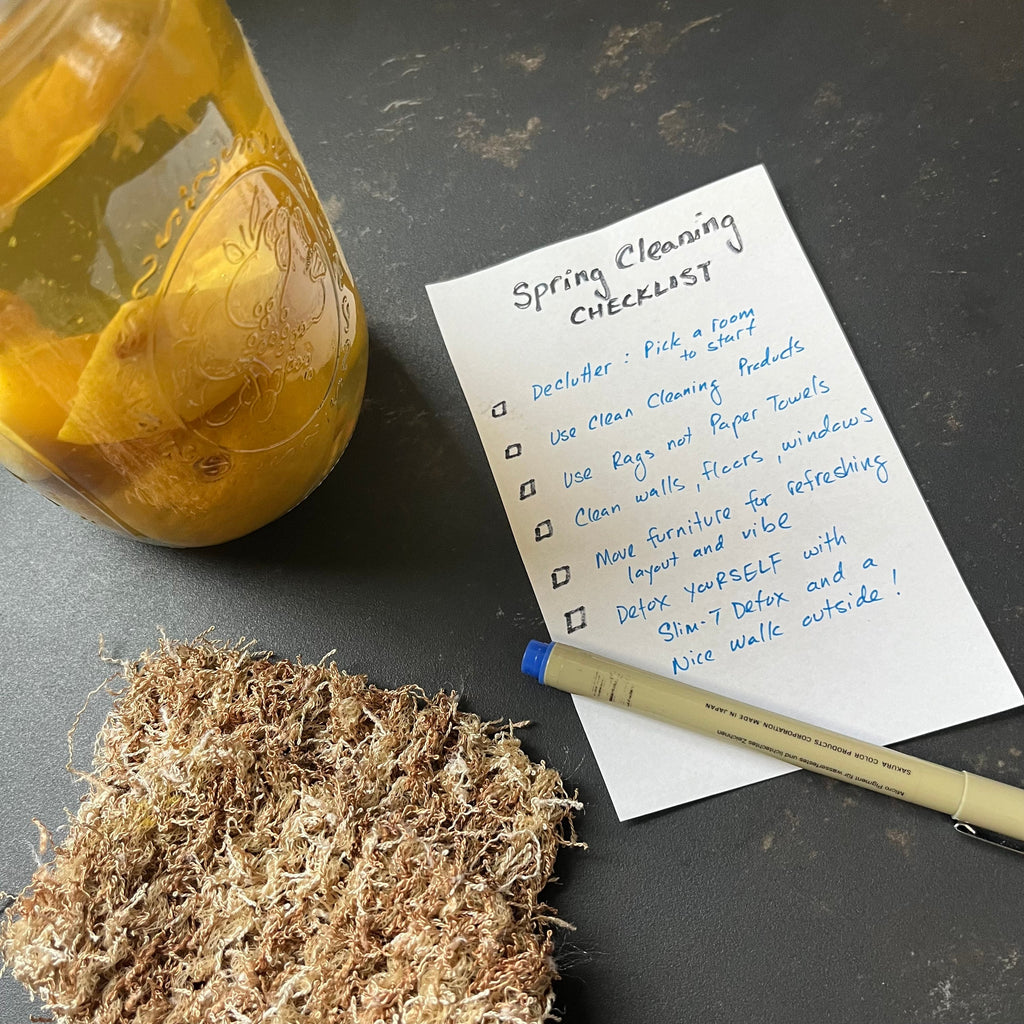 Spring Cleaning
CHECKLIST
Declutter : Pick a room
to start
Use Clean Cleaning Products
Use Rags not Paper Towels
Clean walls, floors, windows
Move furniture for refreshing
layout and vibe
Detox YOURSELF with
Slim-T Detox and a
Nice walk outside!
SAKURA COLOR PRODUCTS CORPORATION MADE IN JAPAN
Micro Pigment für wasserfestes und lichtechtes Zeichnen